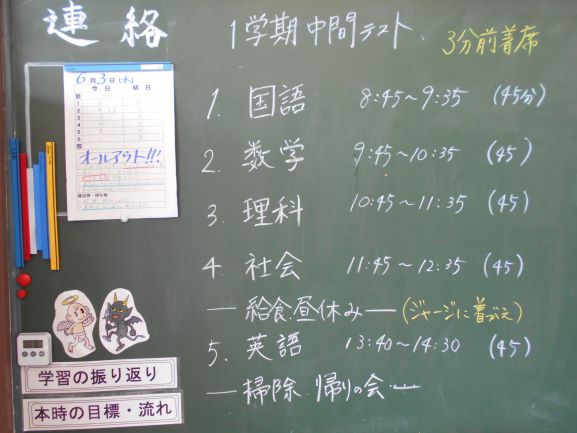 連絡
1学期中間テスト、3分前着席
6月3日(木)
今日 明日
オールアウト!!!
1. 国語 8:45~9:35 (45分)
2. 数学 9:45~10:35 (45)
3. 理科 10:45~11:35 (45)
4. 社会 11:45~12:35 (45)
―給食.昼休み―(ジャージに着がえ)
5. 英語 13:40~14:30 (45)
―掃除.帰りの会.―
学習の振り返り
本時の目標・流れ